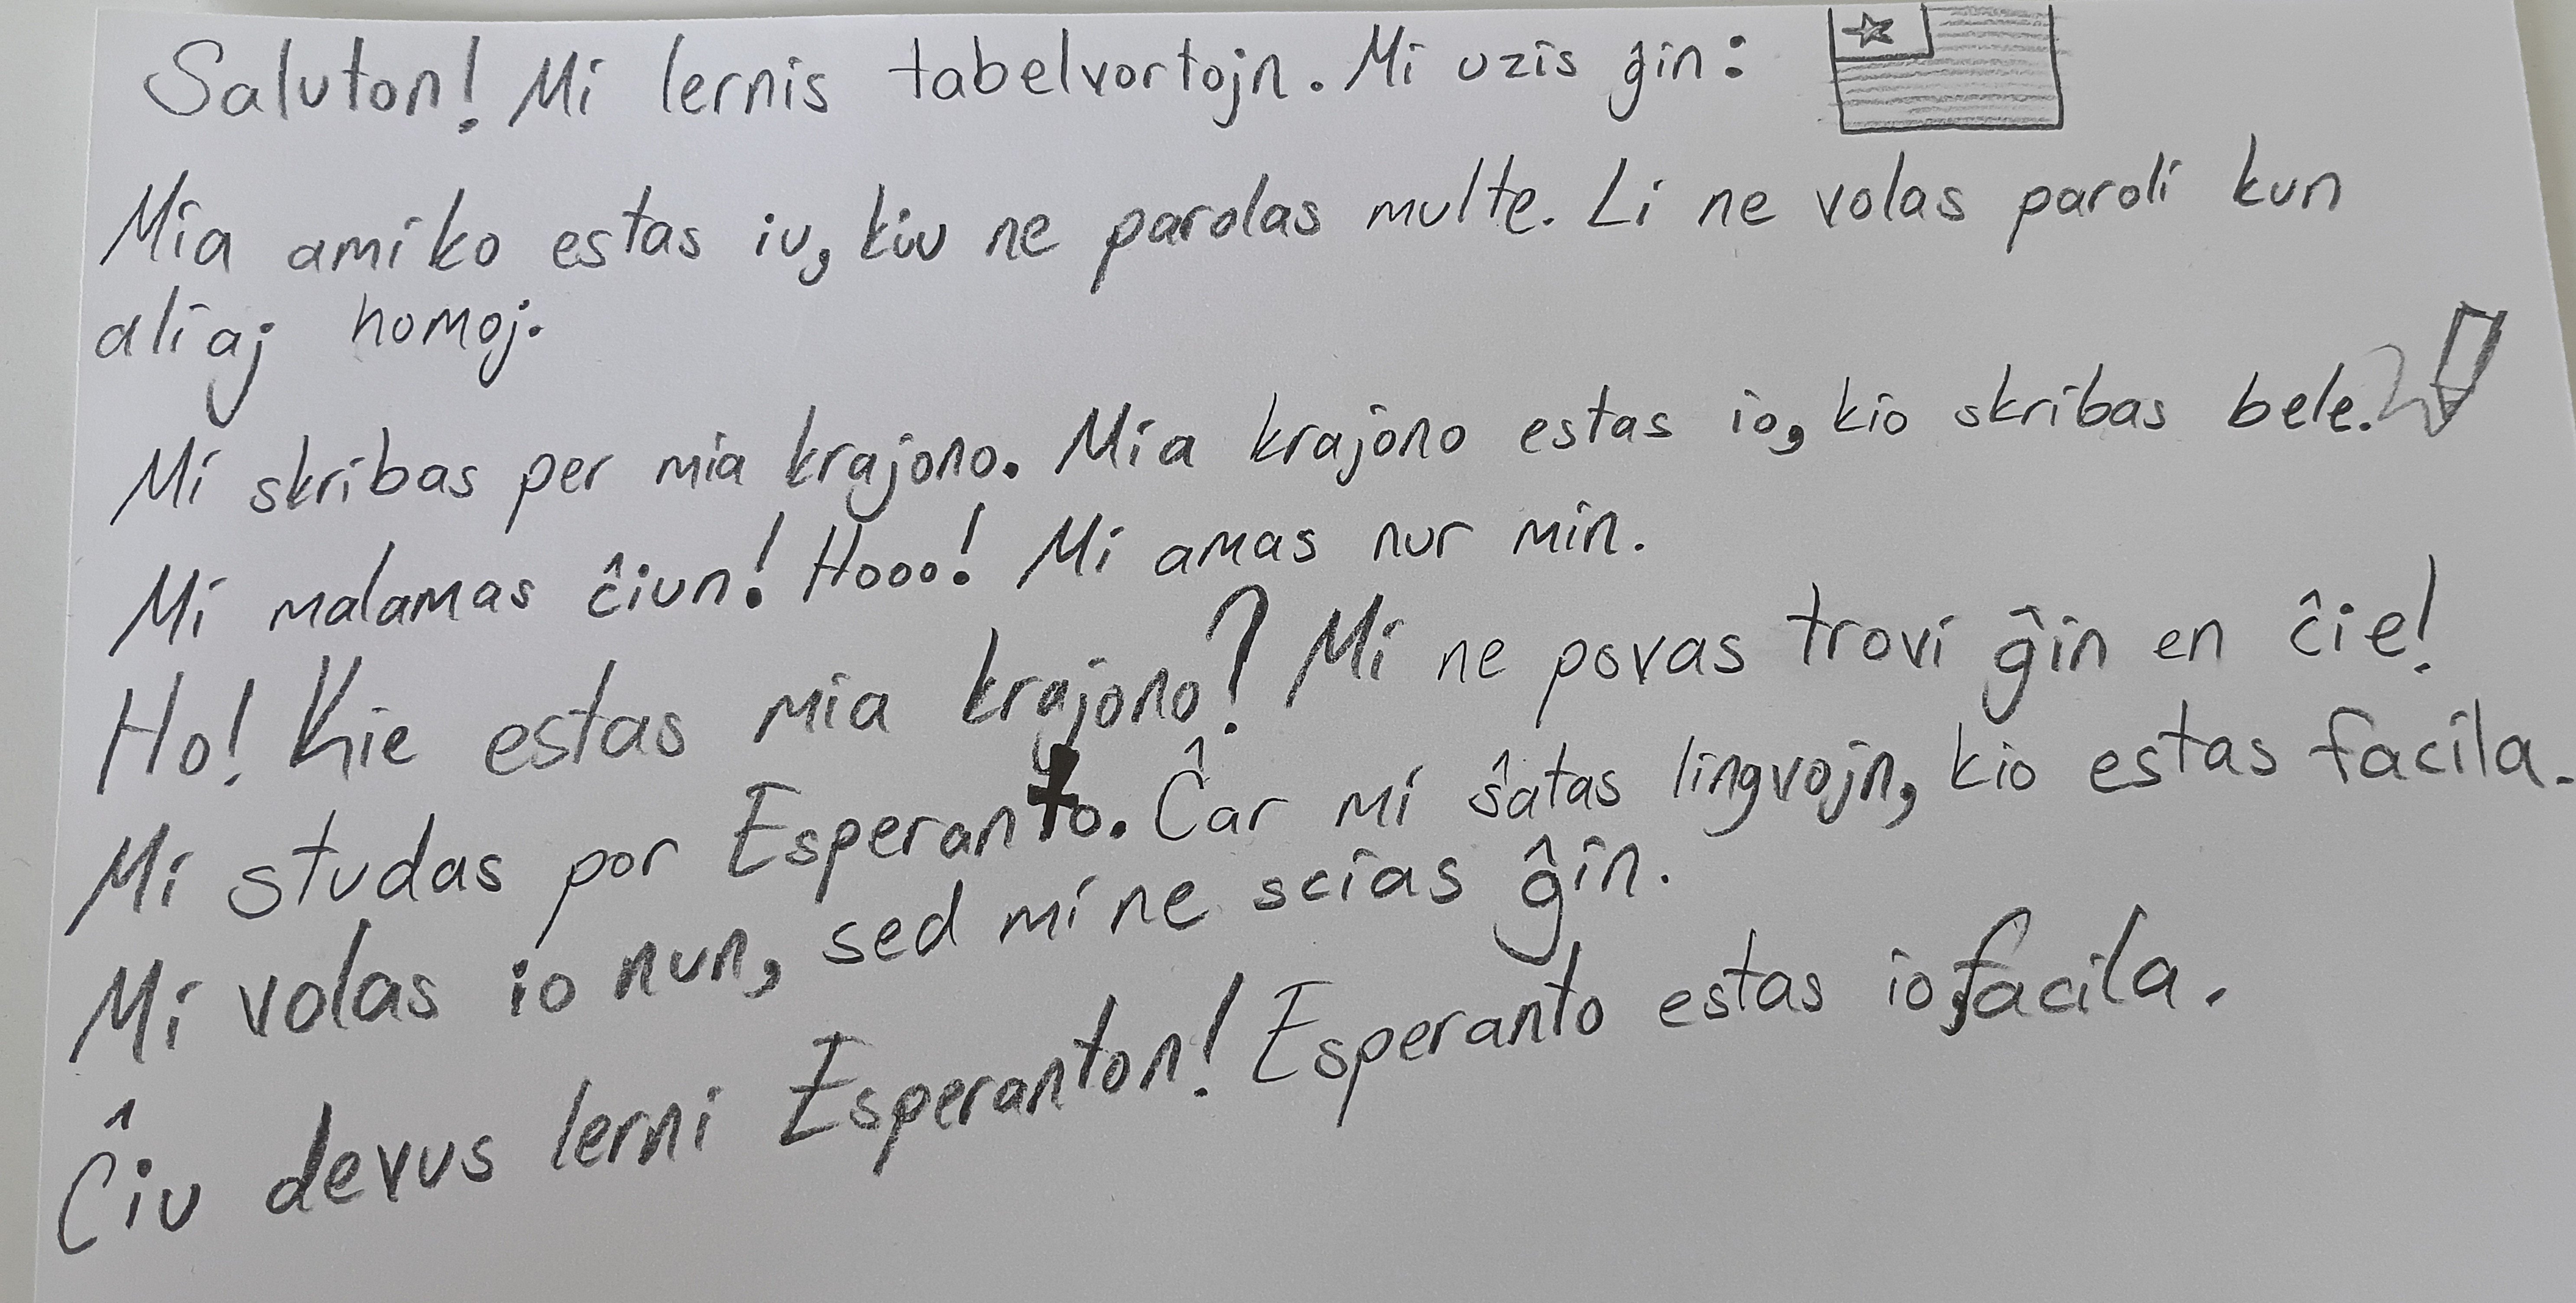 Saluton! Mi lernis tabelvortojn. Mi uzis ĝin:
Mia amiko estas iu, kiu ne parolas multe. Li ne volas paroli kun
aliaj homoj.
Mi skribas per mia krajono. Mia krajono estas io, kio skribas bele.
Mi malamas ĉiun! Hooo! Mi amas nur min.
Ho! Kie estas mia krajono? Mi ne povas trovi ĝin en ĉie!
Mi studas por Esperanto. Ĉar mi ŝatas lingvojn, kio estas facila.
Mi volas io nun, sed mi ne scias ĝin.
Ĉiu devus lerni Esperanton! Esperanto estas io facila.